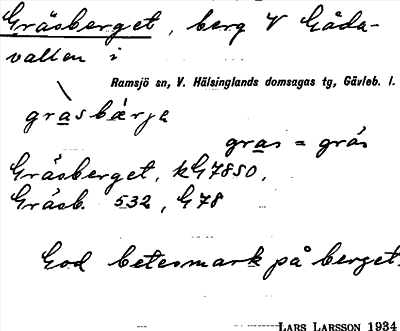 Gräsberget, berg V Gåda-
vallen i
Ramsjö sn, V. Hälsinglands domsagas tg, Gävleb. l.
grasbärje
gras = gräs
Gräsberget, kG7850,
Gräsb. 532, G78
God betesmark på berget.
LARS LARSSON 1934